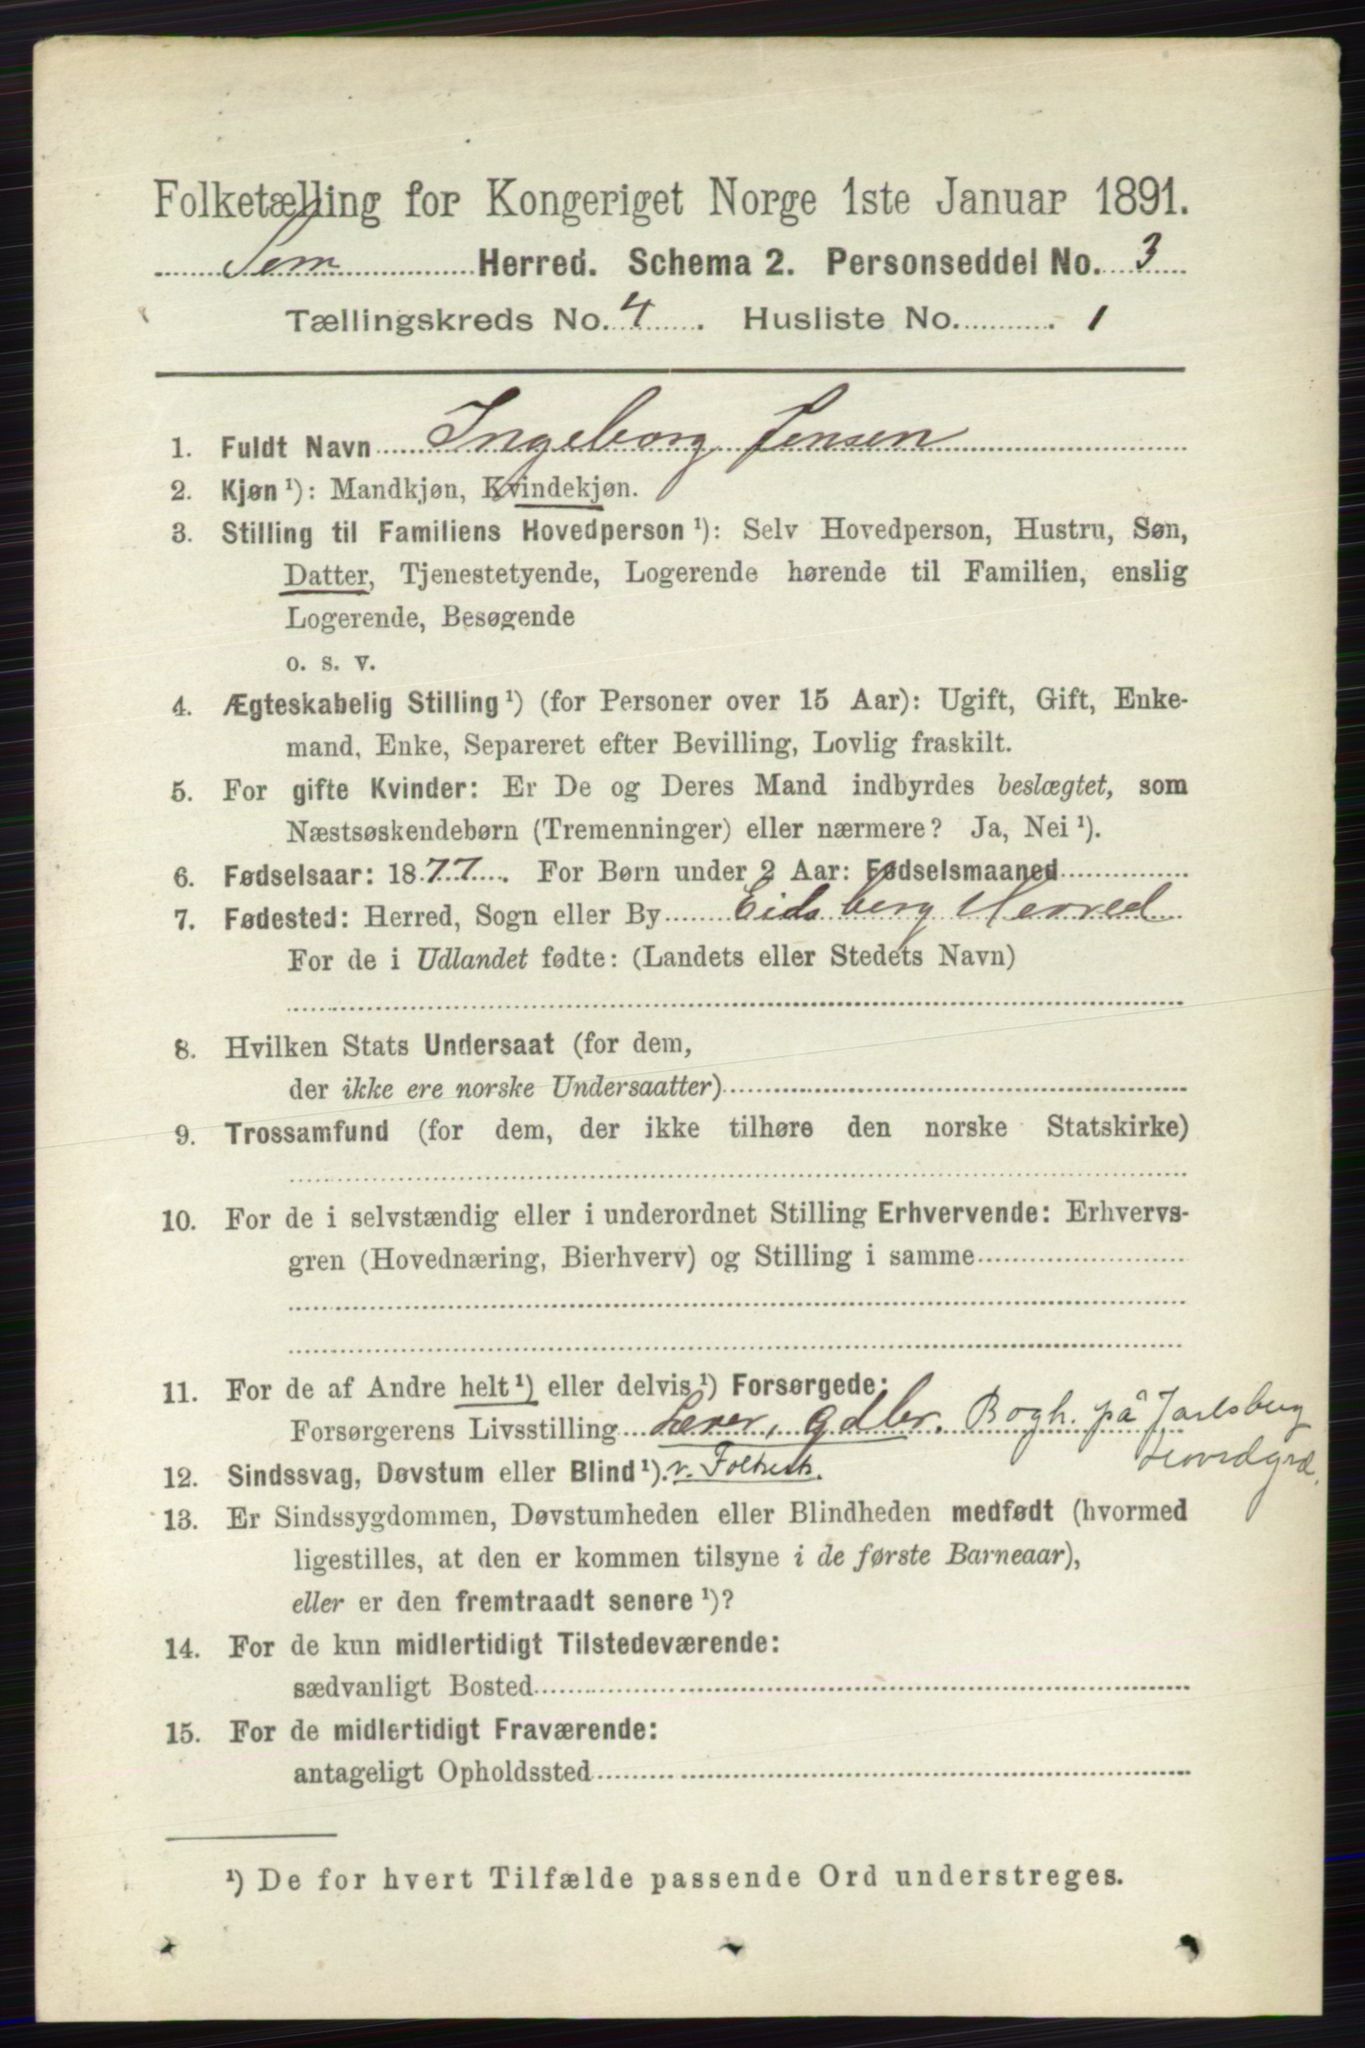 Folketælling for Kongeriget Norge 1ste Januar 1891.
Sem Herred. Schema 2. Personseddel No. 3
Tællingskreds No. 4. Husliste No. 1
1. Fuldt Navn Ingeborg Jensen
2. Kjøn¹): Mandkjøn, Kvindekjøn.
3. Stilling til Familiens Hovedperson¹): Selv Hovedperson, Hustru, Søn,
Datter, Tjenestetyende, Logerende hørende til Familien, enslig
Logerende, Besøgende
o. s. v.
4. Ægteskabelig Stilling¹) (for Personer over 15 Aar): Ugift, Gift, Enke-
mand, Enke, Separeret efter Bevilling, Lovlig fraskilt.
5. For gifte Kvinder: Er De og Deres Mand indbyrdes beslægtet, som
Næstsøskendebørn (Tremenninger) eller nærmere? Ja, Nei¹).
6. Fødselsaar: 1877. For Børn under 2 Aar: Fødselsmaaned
7. Fødested: Herred, Sogn eller By Eidsberg Herred
For de i Udlandet fødte: (Landets eller Stedets Navn)
8. Hvilken Stats Undersaat (for dem,
der ikke ere norske Undersaatter)
9. Trossamfund (for dem, der ikke tilhøre den norske Statskirke)
10. For de i selvstændig eller i underordnet Stilling Erhvervende: Erhvervs-
gren (Hovednæring, Bierhverv) og Stilling i samme
11. For de af Andre helt¹) eller delvis¹) Forsørgede:
Forsørgerens Livsstilling Lærer, Gdbr. Bogh. på Jarlsberg
12. Sindssvag, Døvstum eller Blind¹). v.
13. Er Sindssygdommen, Døvstumheden eller Blindheden medfødt (hvormed
ligestilles, at den er kommen tilsyne i de første Barneaar),
eller er den fremtraadt senere¹)?
14. For de kun midlertidigt Tilstedeværende:
sædvanligt Bosted
15. For de midlertidigt Fraværende:
antageligt Opholdssted
¹) De for hvert Tilfælde passende Ord understreges.